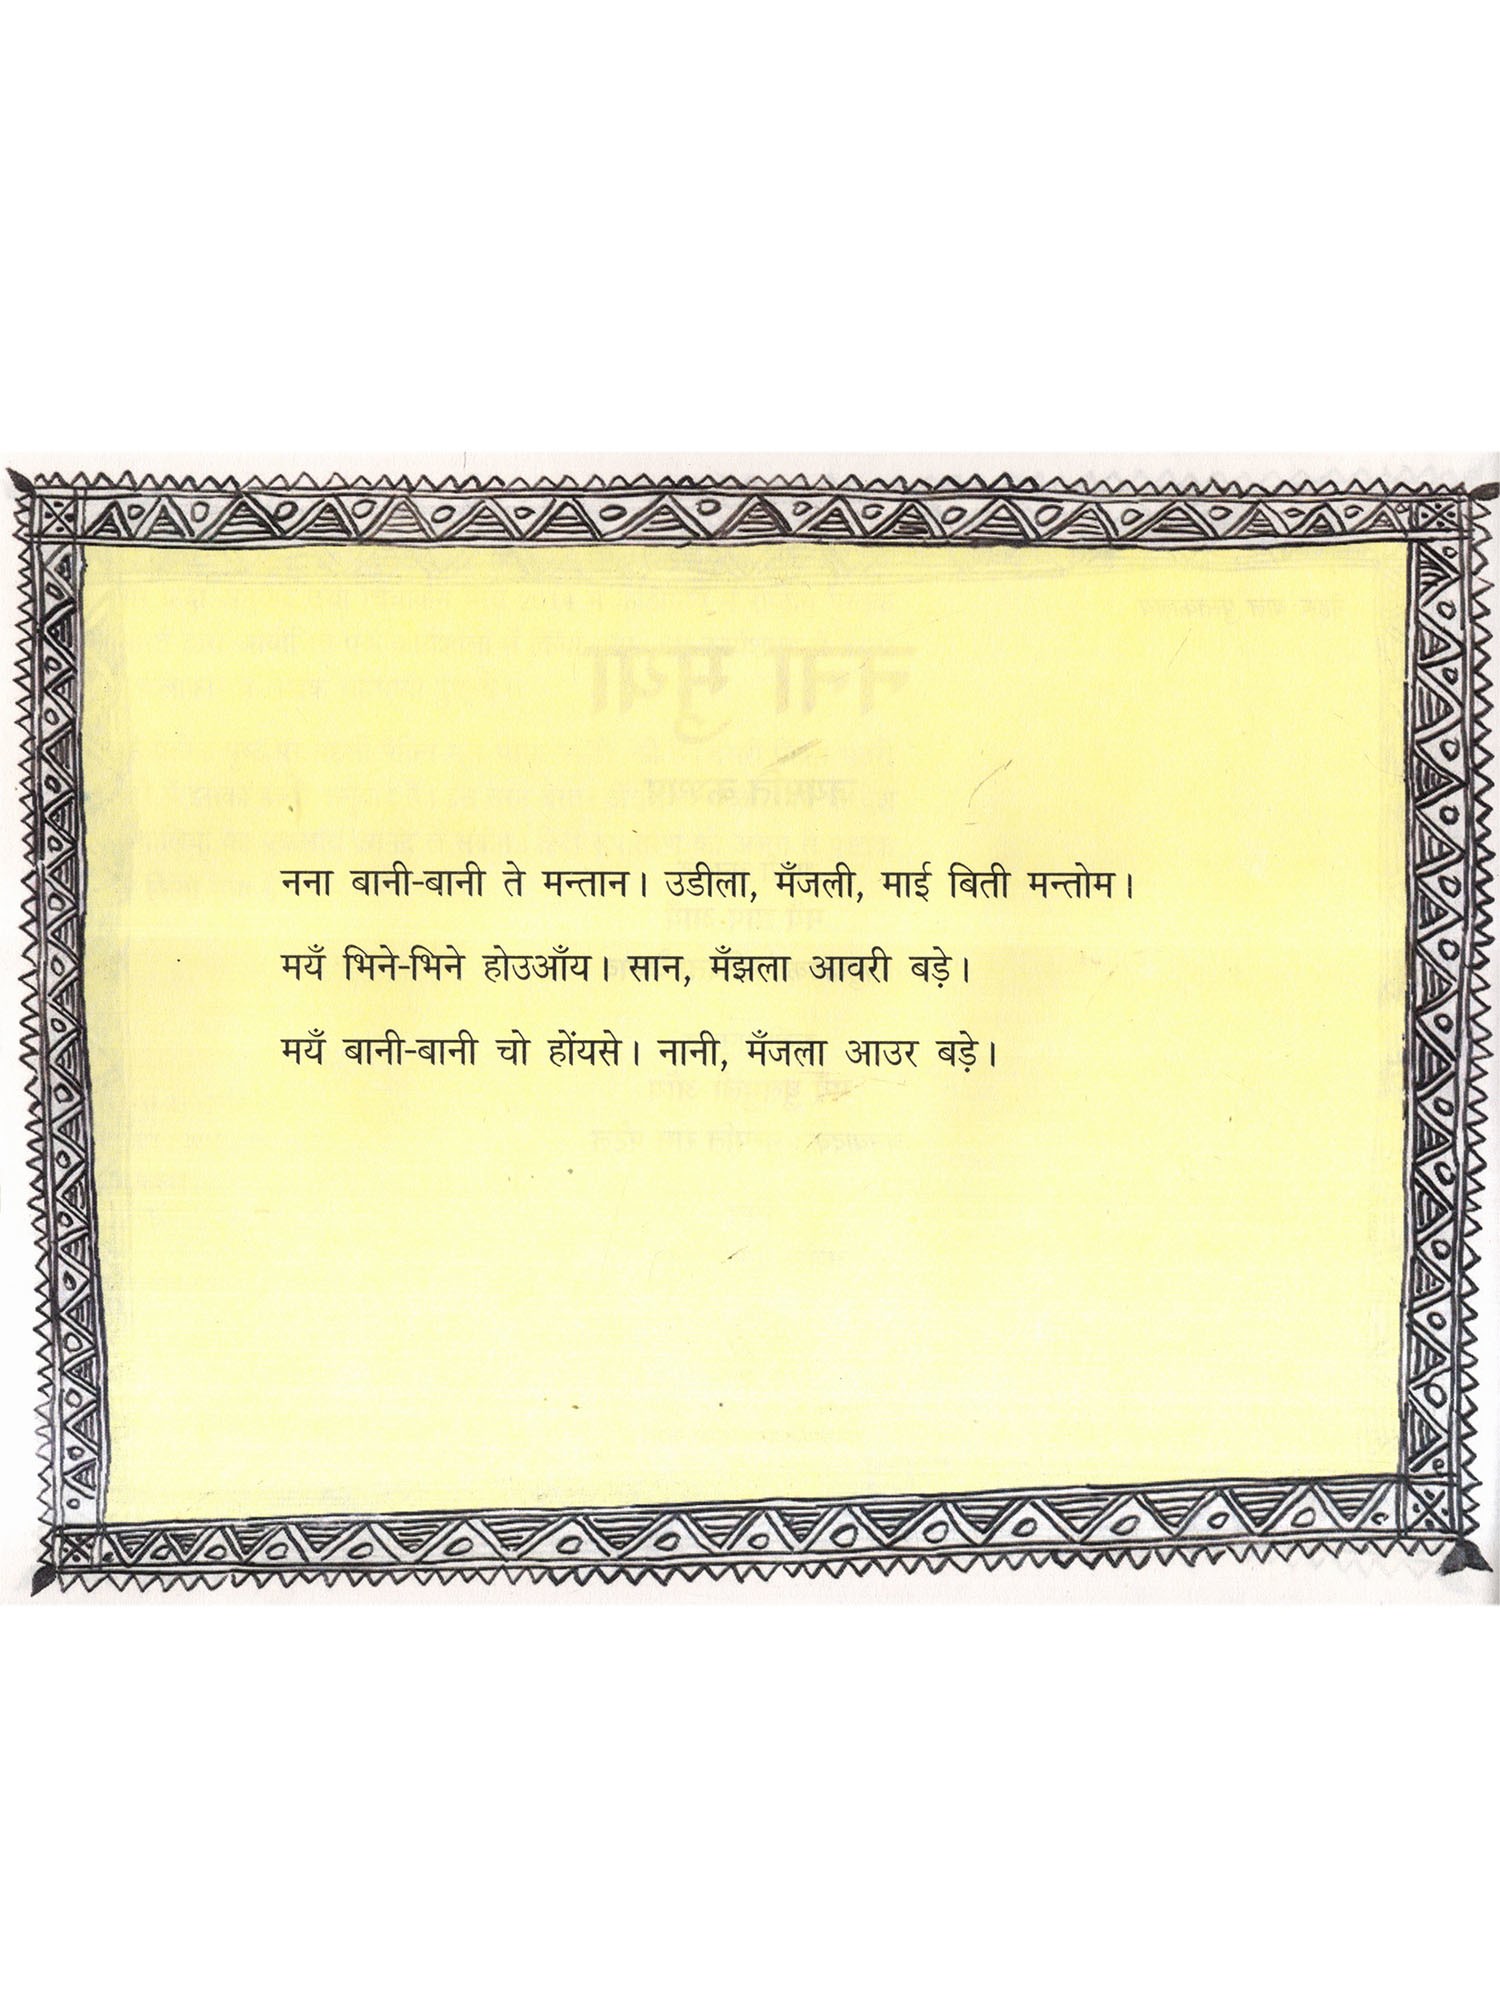 नना बानी-बानी ते मन्तान। उडीला, मँजली, माई बिती मन्तोम।
मयँ भिने-भिने होउआँय। सान, मँझला आवरी बड़े।
मयँ बानी-बानी चो होंयसे। नानी, मँजला आउर बड़े।